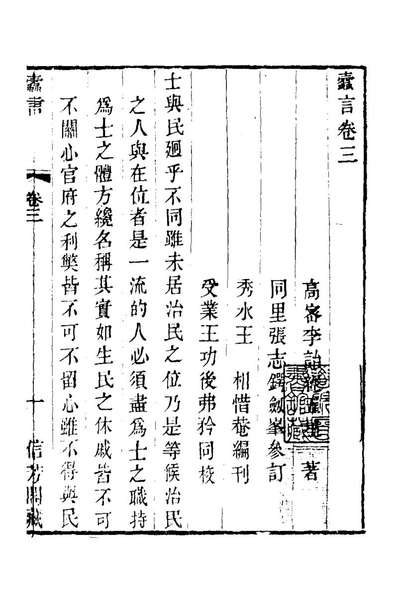 蠹言卷三
高密李詒經 著
同里張志鐸劍峯參訂
秀水王 相惜菴編刊
受業王功後弗矜同校
士與民廻乎不同雖未居治民之位乃是等候治民
之人與在位者是一流的人必須盡爲士之職持
爲士之體方纔名稱其實如生民之休戚皆不可
不關心官府之利弊皆不可不留心雖不得與民
蠹書
卷三
十
信芳閣藏